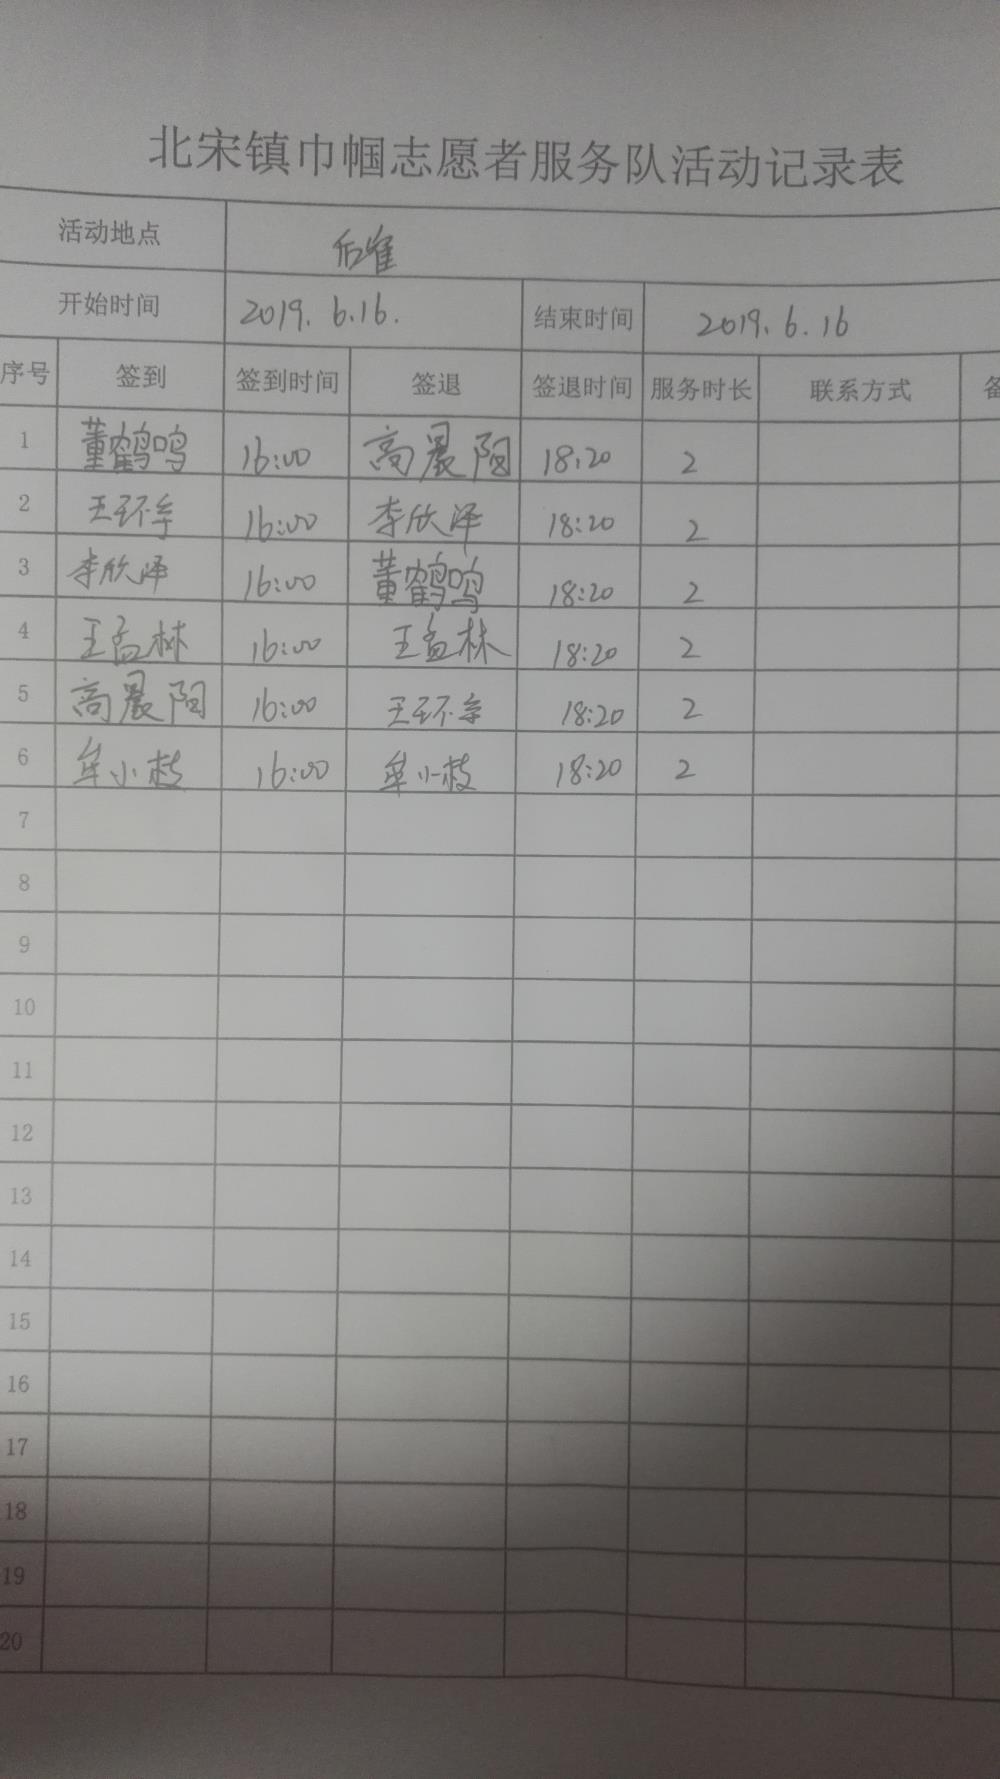 北宋镇巾帼志愿者服务队活动记录表
活动地点 后崔
开始时间 2019.6.16. 结束时间 2019.6.16
序号 签到 签到时间 签退 签退时间 服务时长 联系方式 备
1 董鹤鸣 16:00 高晨阳 18:20 2
2 王环宇 16:00 李欣泽 18:20 2
3 李欣泽 16:00 董鹤鸣 18:20 2
4 王孟林 16:00 王孟林 18:20 2
5 高晨阳 16:00 王环宇 18:20 2
6 牟小枝 16:00 牟小枝 18:20 2
7
8
9
10
11
12
13
14
15
16
17
18
19
20